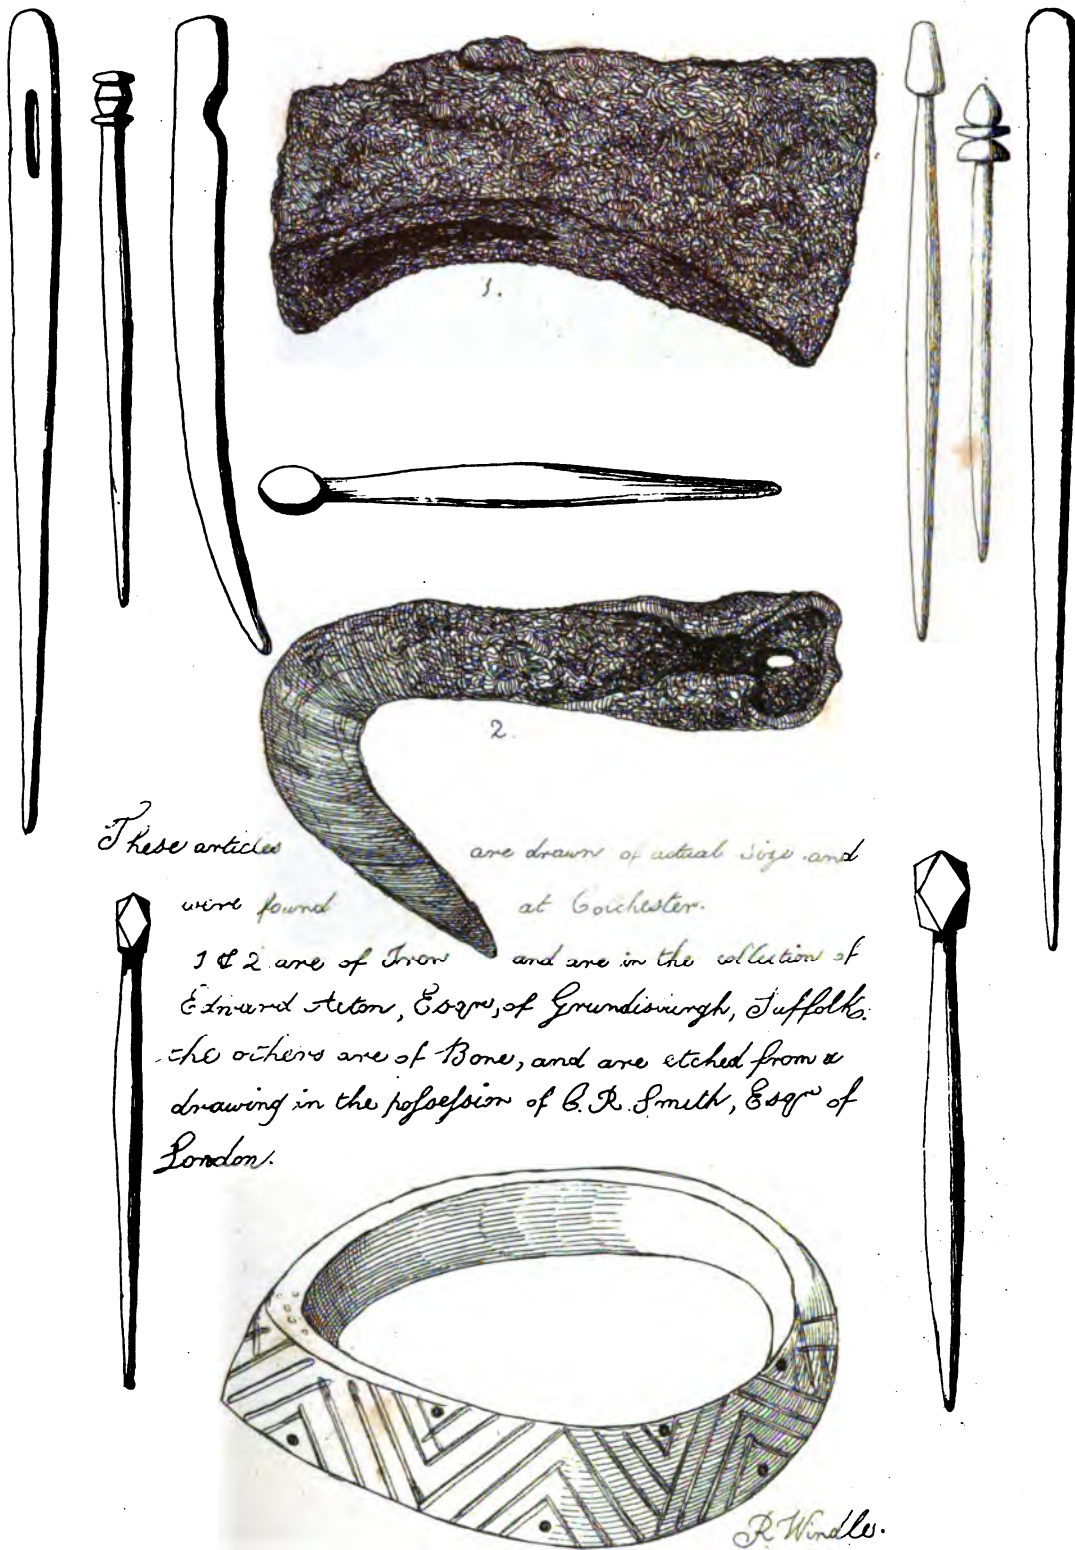 1.
2.
These articles are drawn of actual size and
were found at Colchester.
1 & 2 are of Iron and are in the collection of
Edward Acton, Esqre, of Grundisburgh, Suffolk.
the others are of Bone, and are etched from a
drawing in the poſseſsion of C. R. Smith, Esqre of
London.
R Windle.